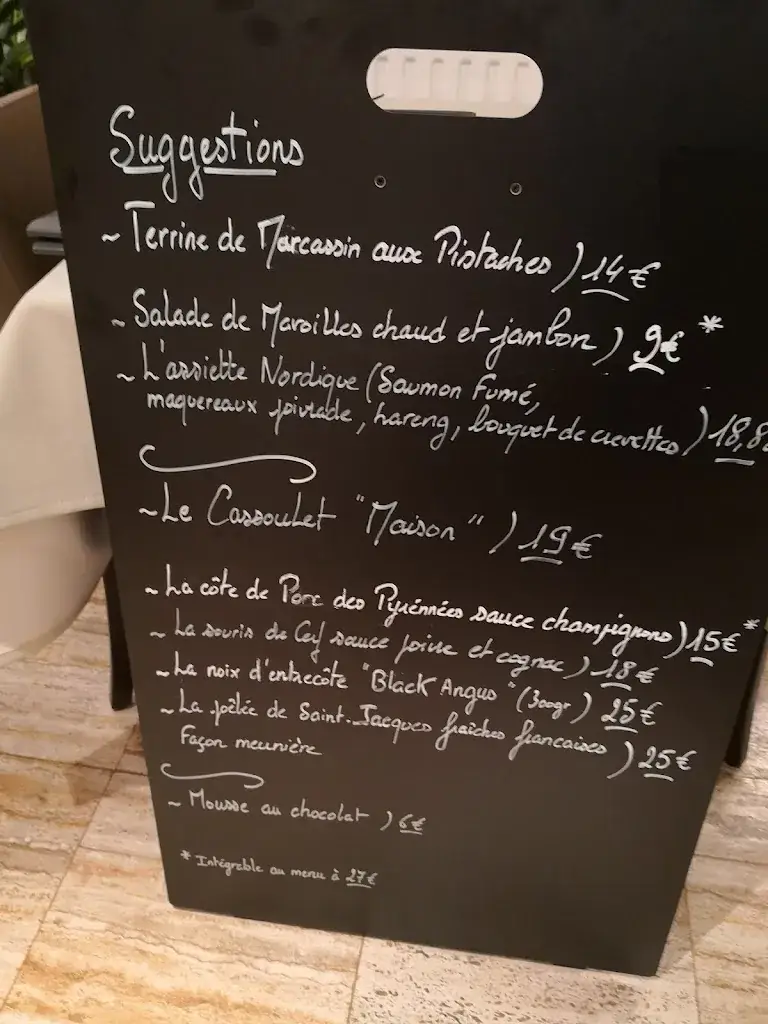 Suggestions
~ Terrine de Marcassin aux Pistaches ) 14 €
~ Salade de Maroilles chaud et jambon ) 9€ *
~ L'assiette Nordique (Saumon Fumé,
maquereaux poivrade, hareng, bouquet de crevettes ) 18,8
~ Le Cassoulet "Maison" ) 19 €
~ La côte de Porc des Pyrénnées sauce champignons ) 15€ *
~ La souris de Cerf sauce poivre et cognac ) 18 €
~ La noix d'entrecôte "Black Angus" (300gr) 25 €
~ La poêlée de Saint-Jacques fraîches francaises ) 25 €
Façon meunière
~ Mousse au chocolat ) 6€
* Intégrable au menu à 27€